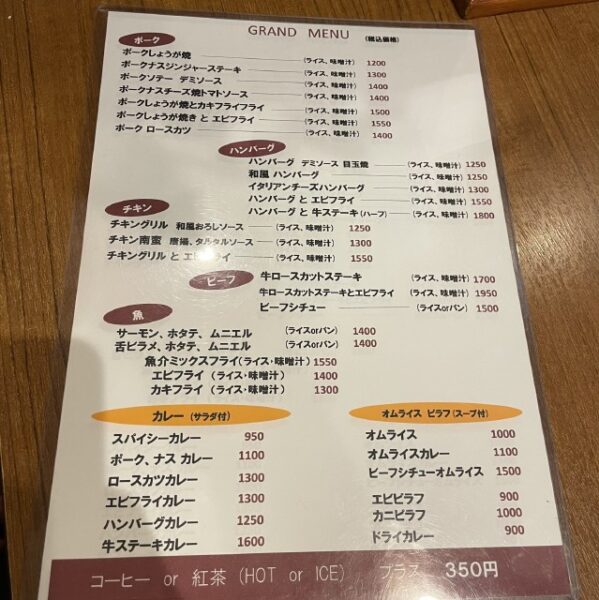 GRAND MENU (税込価格)
ポーク
ポークしょうが焼 (ライス、味噌汁) 1200
ポークナスジンジャーステーキ (ライス、味噌汁) 1300
ポークソテー デミソース (ライス、味噌汁) 1400
ポークナスチーズ焼トマトソース (ライス、味噌汁) 1400
ポークしょうが焼とカキフライフライ (ライス、味噌汁) 1500
ポークしょうが焼き と エビフライ (ライス、味噌汁) 1550
ポーク ロースカツ (ライス、味噌汁) 1400
ハンバーグ
ハンバーグ デミソース 目玉焼 (ライス、味噌汁) 1250
和風 ハンバーグ (ライス、味噌汁) 1250
イタリアンチーズハンバーグ (ライス、味噌汁) 1300
ハンバーグ と エビフライ (ライス、味噌汁) 1550
ハンバーグ と 牛ステーキ(ハーフ) (ライス、味噌汁) 1800
チキン
チキングリル 和風おろしソース (ライス、味噌汁) 1250
チキン南蛮 唐揚、タルタルソース (ライス、味噌汁) 1300
チキングリル と エビフライ (ライス、味噌汁) 1550
ビーフ
牛ロースカットステーキ (ライス、味噌汁) 1700
牛ロースカットステーキとエビフライ (ライス、味噌汁) 1950
ビーフシチュー (ライスorパン) 1500
魚
サーモン、ホタテ、ムニエル (ライスorパン) 1400
舌ビラメ、ホタテ、ムニエル (ライスorパン) 1400
魚介ミックスフライ(ライス・味噌汁) 1550
エビフライ (ライス・味噌汁) 1400
カキフライ (ライス・味噌汁) 1300
カレー (サラダ付)
スパイシーカレー 950
ポーク、ナス カレー 1100
ロースカツカレー 1300
エビフライカレー 1300
ハンバーグカレー 1250
牛ステーキカレー 1600
オムライス ピラフ(スープ付)
オムライス 1000
オムライスカレー 1100
ビーフシチューオムライス 1500
エビピラフ 900
カニピラフ 1000
ドライカレー 900
コーヒー or 紅茶 (HOT or ICE) プラス 350円